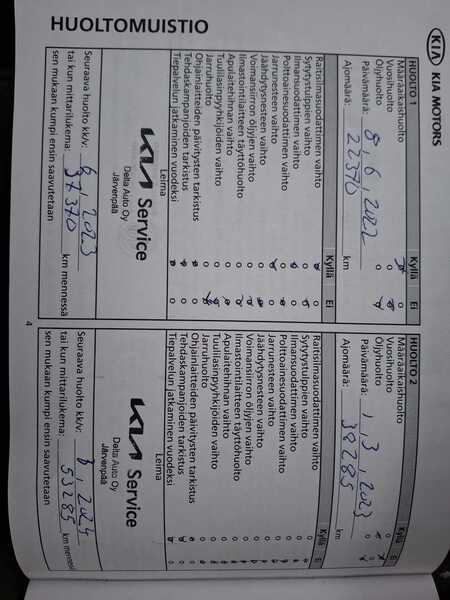 HUOLTOMUISTIO
KIA KIA MOTORS
HUOLTO 1 Kyllä Ei
Määräaikaishuolto
Vuosihuolto
Öljyhuolto
Päivämäärä: 8, 6, 2022
Ajomäärä: 22370 km
Raitisilmasuodattimen vaihto
Sytytystulppien vaihto
Ilmansuodattimen vaihto
Polttoainesuodattimen vaihto
Jarrunesteen vaihto
Jäähdytysnesteen vaihto
Voimansiirron öljyjen vaihto
Ilmastointilaitteen täyttöhuolto
Apulaitehihnan vaihto
Tuulilasinpyyhkijöiden vaihto
Jarruhuolto
Ohjainlaitteiden päivitysten tarkistus
Tehdaskampanjoiden tarkistus
Tiepalvelun jatkaminen vuodeksi
Leima
KIA Service
Delta Auto Oy
Järvenpää
Seuraava huolto kk/v: 6, 2023
tai kun mittarilukema: 37370 km mennessä
sen mukaan kumpi ensin saavutetaan
HUOLTO 2 Kyllä Ei
Määräaikaishuolto
Vuosihuolto
Öljyhuolto
Päivämäärä: 1, 3, 2023
Ajomäärä: 38285 km
Raitisilmasuodattimen vaihto
Sytytystulppien vaihto
Ilmansuodattimen vaihto
Polttoainesuodattimen vaihto
Jarrunesteen vaihto
Jäähdytysnesteen vaihto
Voimansiirron öljyjen vaihto
Ilmastointilaitteen täyttöhuolto
Apulaitehihnan vaihto
Tuulilasinpyyhkijöiden vaihto
Jarruhuolto
Ohjainlaitteiden päivitysten tarkistus
Tehdaskampanjoiden tarkistus
Tiepalvelun jatkaminen vuodeksi
Leima
KIA Service
Delta Auto Oy
Järvenpää
Seuraava huolto kk/v: 2024
tai kun mittarilukema: 53285 km mennessä
sen mukaan kumpi ensin saavutetaan
4